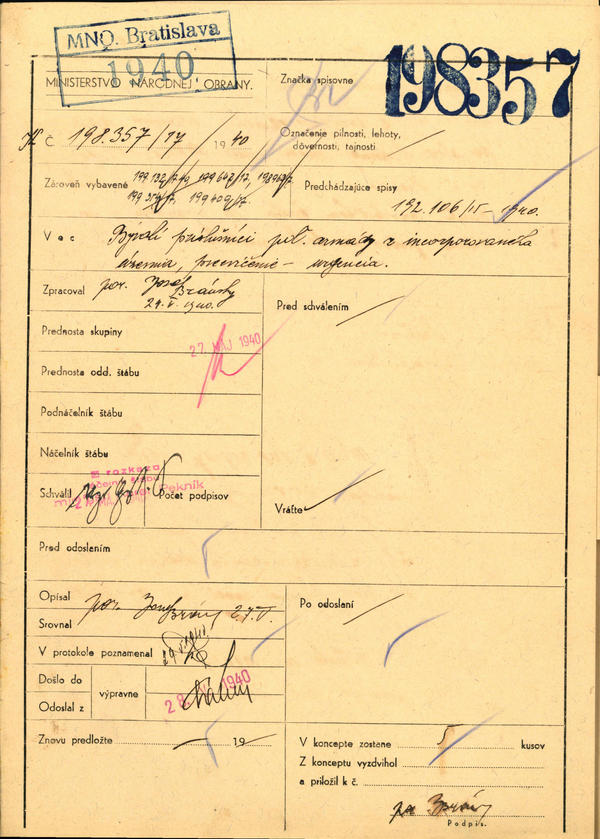 MNO. Bratislava
1940
198357
MINISTERSTVO NÁRODNEJ OBRANY.
Značka spisovne
Č. 198.357/17/1940
Označenie pilnosti, lehoty,
dôvernosti, tajnosti
Zároveň vybavené
199.409/17.
Predchádzajúce spisy
192.106/II-1940.
Vec Bývalí príslušníci poľ. armády z inkorporovaného
územia, precvičenie – urgencia.
Zpracoval por. Jozef
24.V.1940.
Pred schválením
Prednosta skupiny
27. MÁJ 1940
Prednosta odd. štábu
Podnáčelník štábu
Náčelník štábu
z rozkazu
náčelník štábu
Schválil
Pekník
Počet podpisov
Vráťte
Pred odoslaním
Opísal por. Jozef 27.V.
Srovnal
Po odoslaní
V protokole poznamenal
Došlo do
výpravne
Odoslal z
28. 1940
Znovu predložte — 19 —
V koncepte zostane 5 kusov
Z konceptu vyzdvihol
a priložil k č.
Podpis.